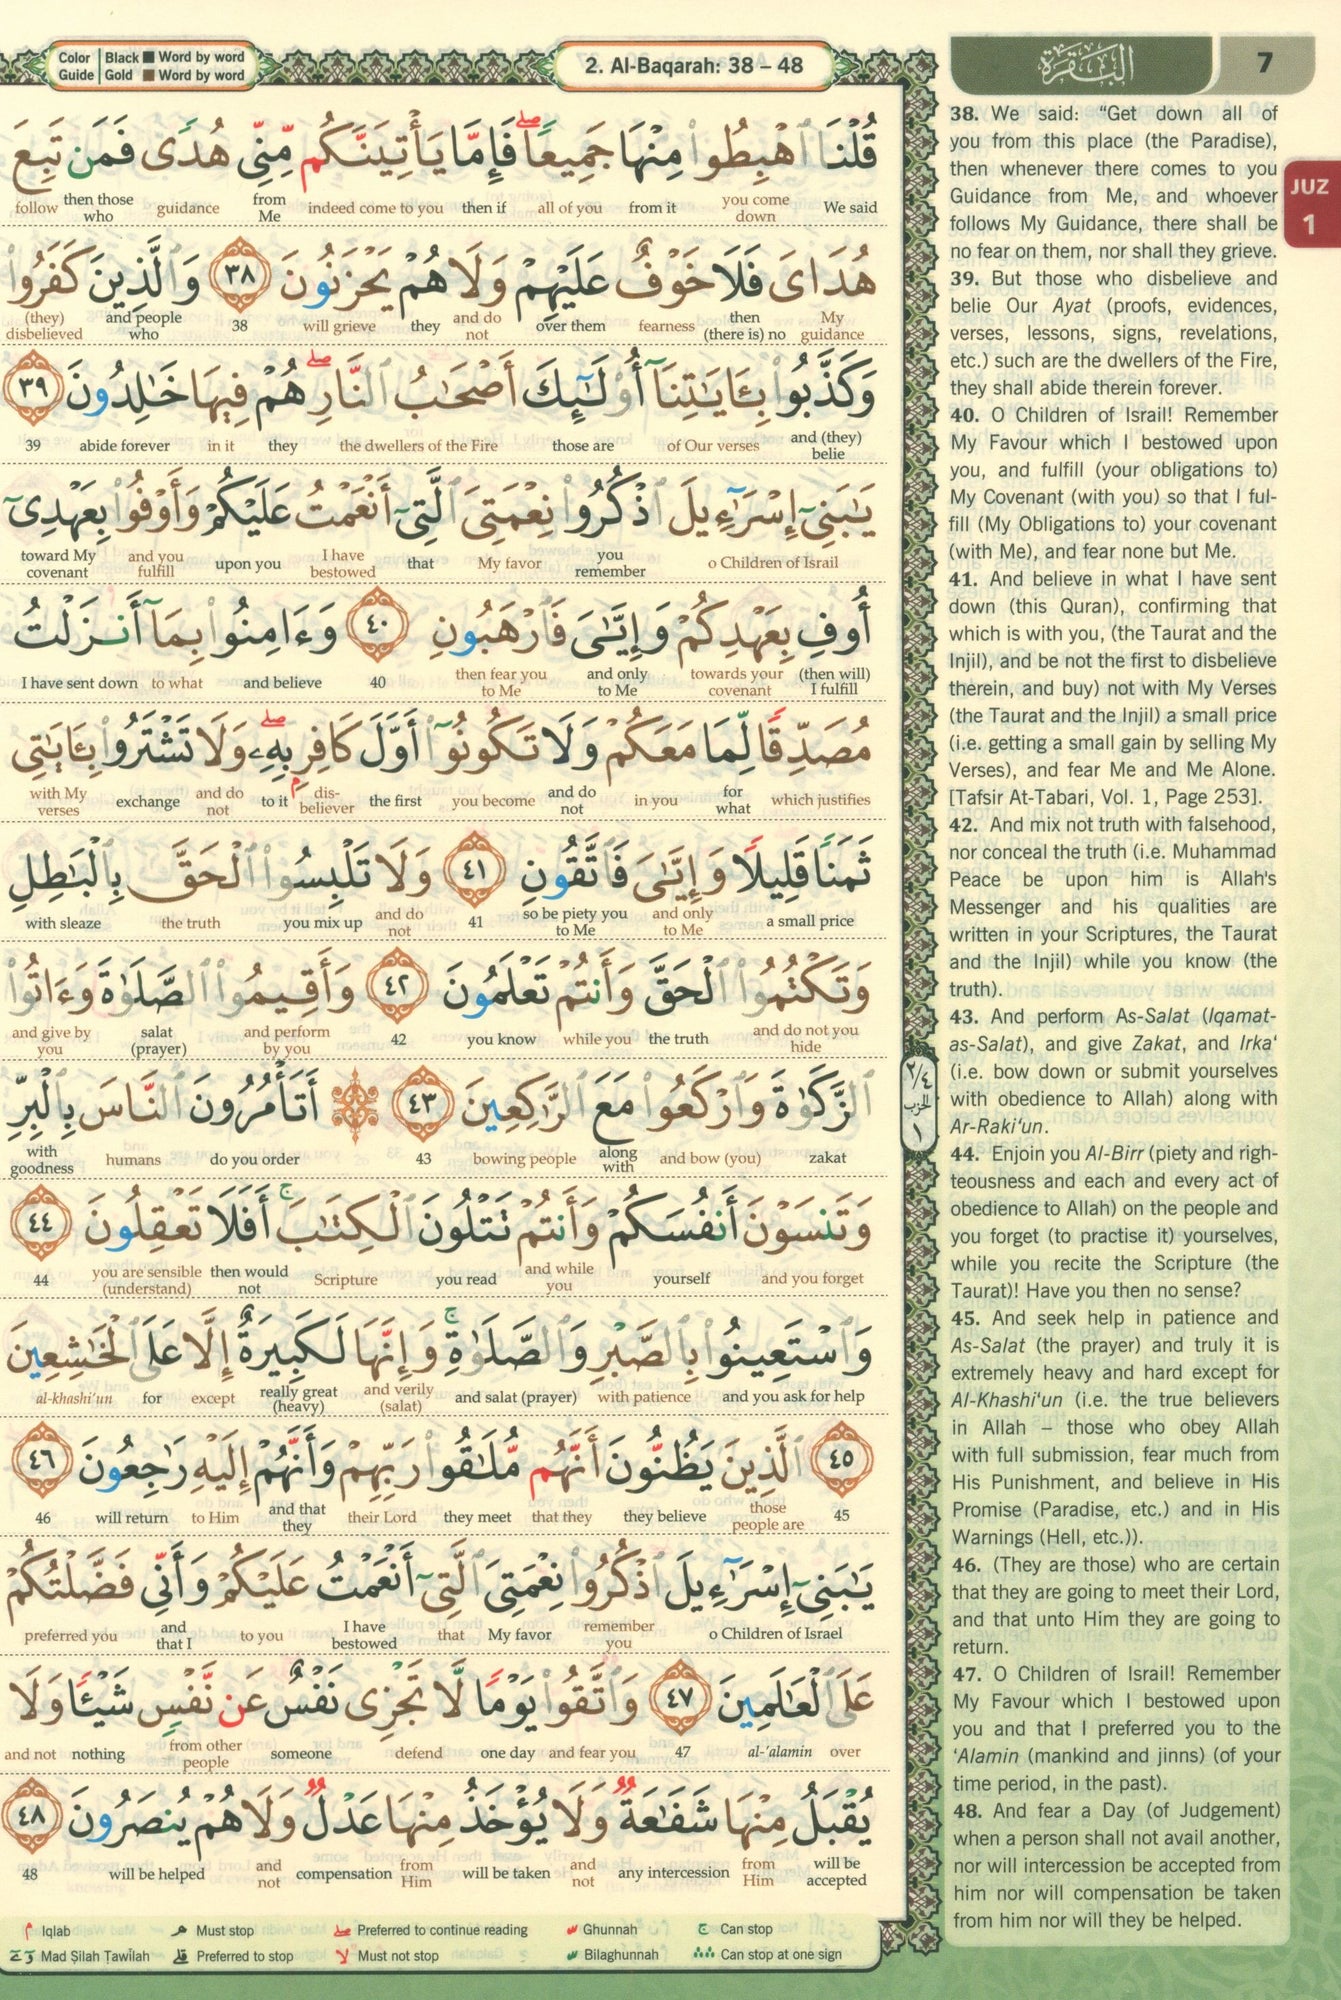 Color Guide | Black ■ Word by word
Gold ■ Word by word
2. Al-Baqarah: 38 – 48
البقرة
7
JUZ
1
قُلْنَا ٱهْبِطُوا۟ مِنْهَا جَمِيعًا ۖ فَإِمَّا يَأْتِيَنَّكُم مِّنِّى هُدًى فَمَن تَبِعَ
We said you come down from it all of you then if indeed come to you from Me guidance then those who follow
هُدَاىَ فَلَا خَوْفٌ عَلَيْهِمْ وَلَا هُمْ يَحْزَنُونَ ٣٨ وَٱلَّذِينَ كَفَرُوا۟
My guidance then (there is) no fearness over them and do not they will grieve 38 and people who (they) disbelieved
وَكَذَّبُوا۟ بِـَٔايَـٰتِنَآ أُو۟لَـٰٓئِكَ أَصْحَـٰبُ ٱلنَّارِ ۖ هُمْ فِيهَا خَـٰلِدُونَ ٣٩
and (they) belie of Our verses those are the dwellers of the Fire they in it abide forever 39
يَـٰبَنِىٓ إِسْرَٰٓءِيلَ ٱذْكُرُوا۟ نِعْمَتِىَ ٱلَّتِىٓ أَنْعَمْتُ عَلَيْكُمْ وَأَوْفُوا۟ بِعَهْدِىٓ
o Children of Israil you remember My favor that I have bestowed upon you and you fulfill toward My covenant
أُوفِ بِعَهْدِكُمْ وَإِيَّـٰىَ فَٱرْهَبُونِ ٤٠ وَءَامِنُوا۟ بِمَآ أَنزَلْتُ
(then will) I fulfill towards your covenant and only to Me then fear you to Me 40 and believe to what I have sent down
مُصَدِّقًا لِّمَا مَعَكُمْ وَلَا تَكُونُوٓا۟ أَوَّلَ كَافِرٍۭ بِهِۦ ۖ وَلَا تَشْتَرُوا۟ بِـَٔايَـٰتِى
which justifies for what in you and do not you become the first dis-believer to it and do not exchange with My verses
ثَمَنًا قَلِيلًا وَإِيَّـٰىَ فَٱتَّقُونِ ٤١ وَلَا تَلْبِسُوا۟ ٱلْحَقَّ بِٱلْبَـٰطِلِ
a small price and only to Me so be piety you to Me 41 and do not you mix up the truth with sleaze
وَتَكْتُمُوا۟ ٱلْحَقَّ وَأَنتُمْ تَعْلَمُونَ ٤٢ وَأَقِيمُوا۟ ٱلصَّلَوٰةَ وَءَاتُوا۟
and do not you hide the truth while you you know 42 and perform by you salat (prayer) and give by you
ٱلزَّكَوٰةَ وَٱرْكَعُوا۟ مَعَ ٱلرَّٰكِعِينَ ٤٣ ۞ أَتَأْمُرُونَ ٱلنَّاسَ بِٱلْبِرِّ
zakat and bow (you) along with bowing people 43 do you order humans with goodness
٢/٤ الحزب ١
وَتَنسَوْنَ أَنفُسَكُمْ وَأَنتُمْ تَتْلُونَ ٱلْكِتَـٰبَ ۚ أَفَلَا تَعْقِلُونَ ٤٤
and you forget yourself and while you you read Scripture then would not you are sensible (understand) 44
وَٱسْتَعِينُوا۟ بِٱلصَّبْرِ وَٱلصَّلَوٰةِ ۚ وَإِنَّهَا لَكَبِيرَةٌ إِلَّا عَلَى ٱلْخَـٰشِعِينَ
and you ask for help with patience and salat (prayer) and verily (salat) really great (heavy) except for al-khashi‘un
٤٥ ٱلَّذِينَ يَظُنُّونَ أَنَّهُم مُّلَـٰقُوا۟ رَبِّهِمْ وَأَنَّهُمْ إِلَيْهِ رَٰجِعُونَ ٤٦
45 those people are they believe that they they meet their Lord and that they to Him will return 46
يَـٰبَنِىٓ إِسْرَٰٓءِيلَ ٱذْكُرُوا۟ نِعْمَتِىَ ٱلَّتِىٓ أَنْعَمْتُ عَلَيْكُمْ وَأَنِّى فَضَّلْتُكُمْ
o Children of Israel remember you My favor that I have bestowed to you and that I preferred you
عَلَى ٱلْعَـٰلَمِينَ ٤٧ وَٱتَّقُوا۟ يَوْمًا لَّا تَجْزِى نَفْسٌ عَن نَّفْسٍ شَيْـًٔا وَلَا
over al-‘alamin 47 and fear you one day defend someone from other (are) people nothing and not
يُقْبَلُ مِنْهَا شَفَـٰعَةٌ وَلَا يُؤْخَذُ مِنْهَا عَدْلٌ وَلَا هُمْ يُنصَرُونَ ٤٨
will be accepted from Him any intercession and not will be taken from Him compensation and not will be helped 48
Iqlab Must stop Preferred to continue reading Ghunnah Can stop
Mad Ṣilah Ṭawīlah Preferred to stop Must not stop Bilaghunnah Can stop at one sign
38. We said: “Get down all of
you from this place (the Paradise),
then whenever there comes to you
Guidance from Me, and whoever
follows My Guidance, there shall be
no fear on them, nor shall they grieve.
39. But those who disbelieve and
belie Our Ayat (proofs, evidences,
verses, lessons, signs, revelations,
etc.) such are the dwellers of the Fire,
they shall abide therein forever.
40. O Children of Israil! Remember
My Favour which I bestowed upon
you, and fulfill (your obligations to)
My Covenant (with you) so that I ful-
fill (My Obligations to) your covenant
(with Me), and fear none but Me.
41. And believe in what I have sent
down (this Quran), confirming that
which is with you, (the Taurat and the
Injil), and be not the first to disbelieve
therein, and buy) not with My Verses
(the Taurat and the Injil) a small price
(i.e. getting a small gain by selling My
Verses), and fear Me and Me Alone.
[Tafsir At-Tabari, Vol. 1, Page 253].
42. And mix not truth with falsehood,
nor conceal the truth (i.e. Muhammad
Peace be upon him is Allah's
Messenger and his qualities are
written in your Scriptures, the Taurat
and the Injil) while you know (the
truth).
43. And perform As-Salat (Iqamat-
as-Salat), and give Zakat, and Irka‘
(i.e. bow down or submit yourselves
with obedience to Allah) along with
Ar-Raki‘un.
44. Enjoin you Al-Birr (piety and righ-
teousness and each and every act of
obedience to Allah) on the people and
you forget (to practise it) yourselves,
while you recite the Scripture (the
Taurat)! Have you then no sense?
45. And seek help in patience and
As-Salat (the prayer) and truly it is
extremely heavy and hard except for
Al-Khashi‘un (i.e. the true believers
in Allah – those who obey Allah
with full submission, fear much from
His Punishment, and believe in His
Promise (Paradise, etc.) and in His
Warnings (Hell, etc.)).
46. (They are those) who are certain
that they are going to meet their Lord,
and that unto Him they are going to
return.
47. O Children of Israil! Remember
My Favour which I bestowed upon
you and that I preferred you to the
‘Alamin (mankind and jinns) (of your
time period, in the past).
48. And fear a Day (of Judgement)
when a person shall not avail another,
nor will intercession be accepted from
him nor will compensation be taken
from him nor will they be helped.